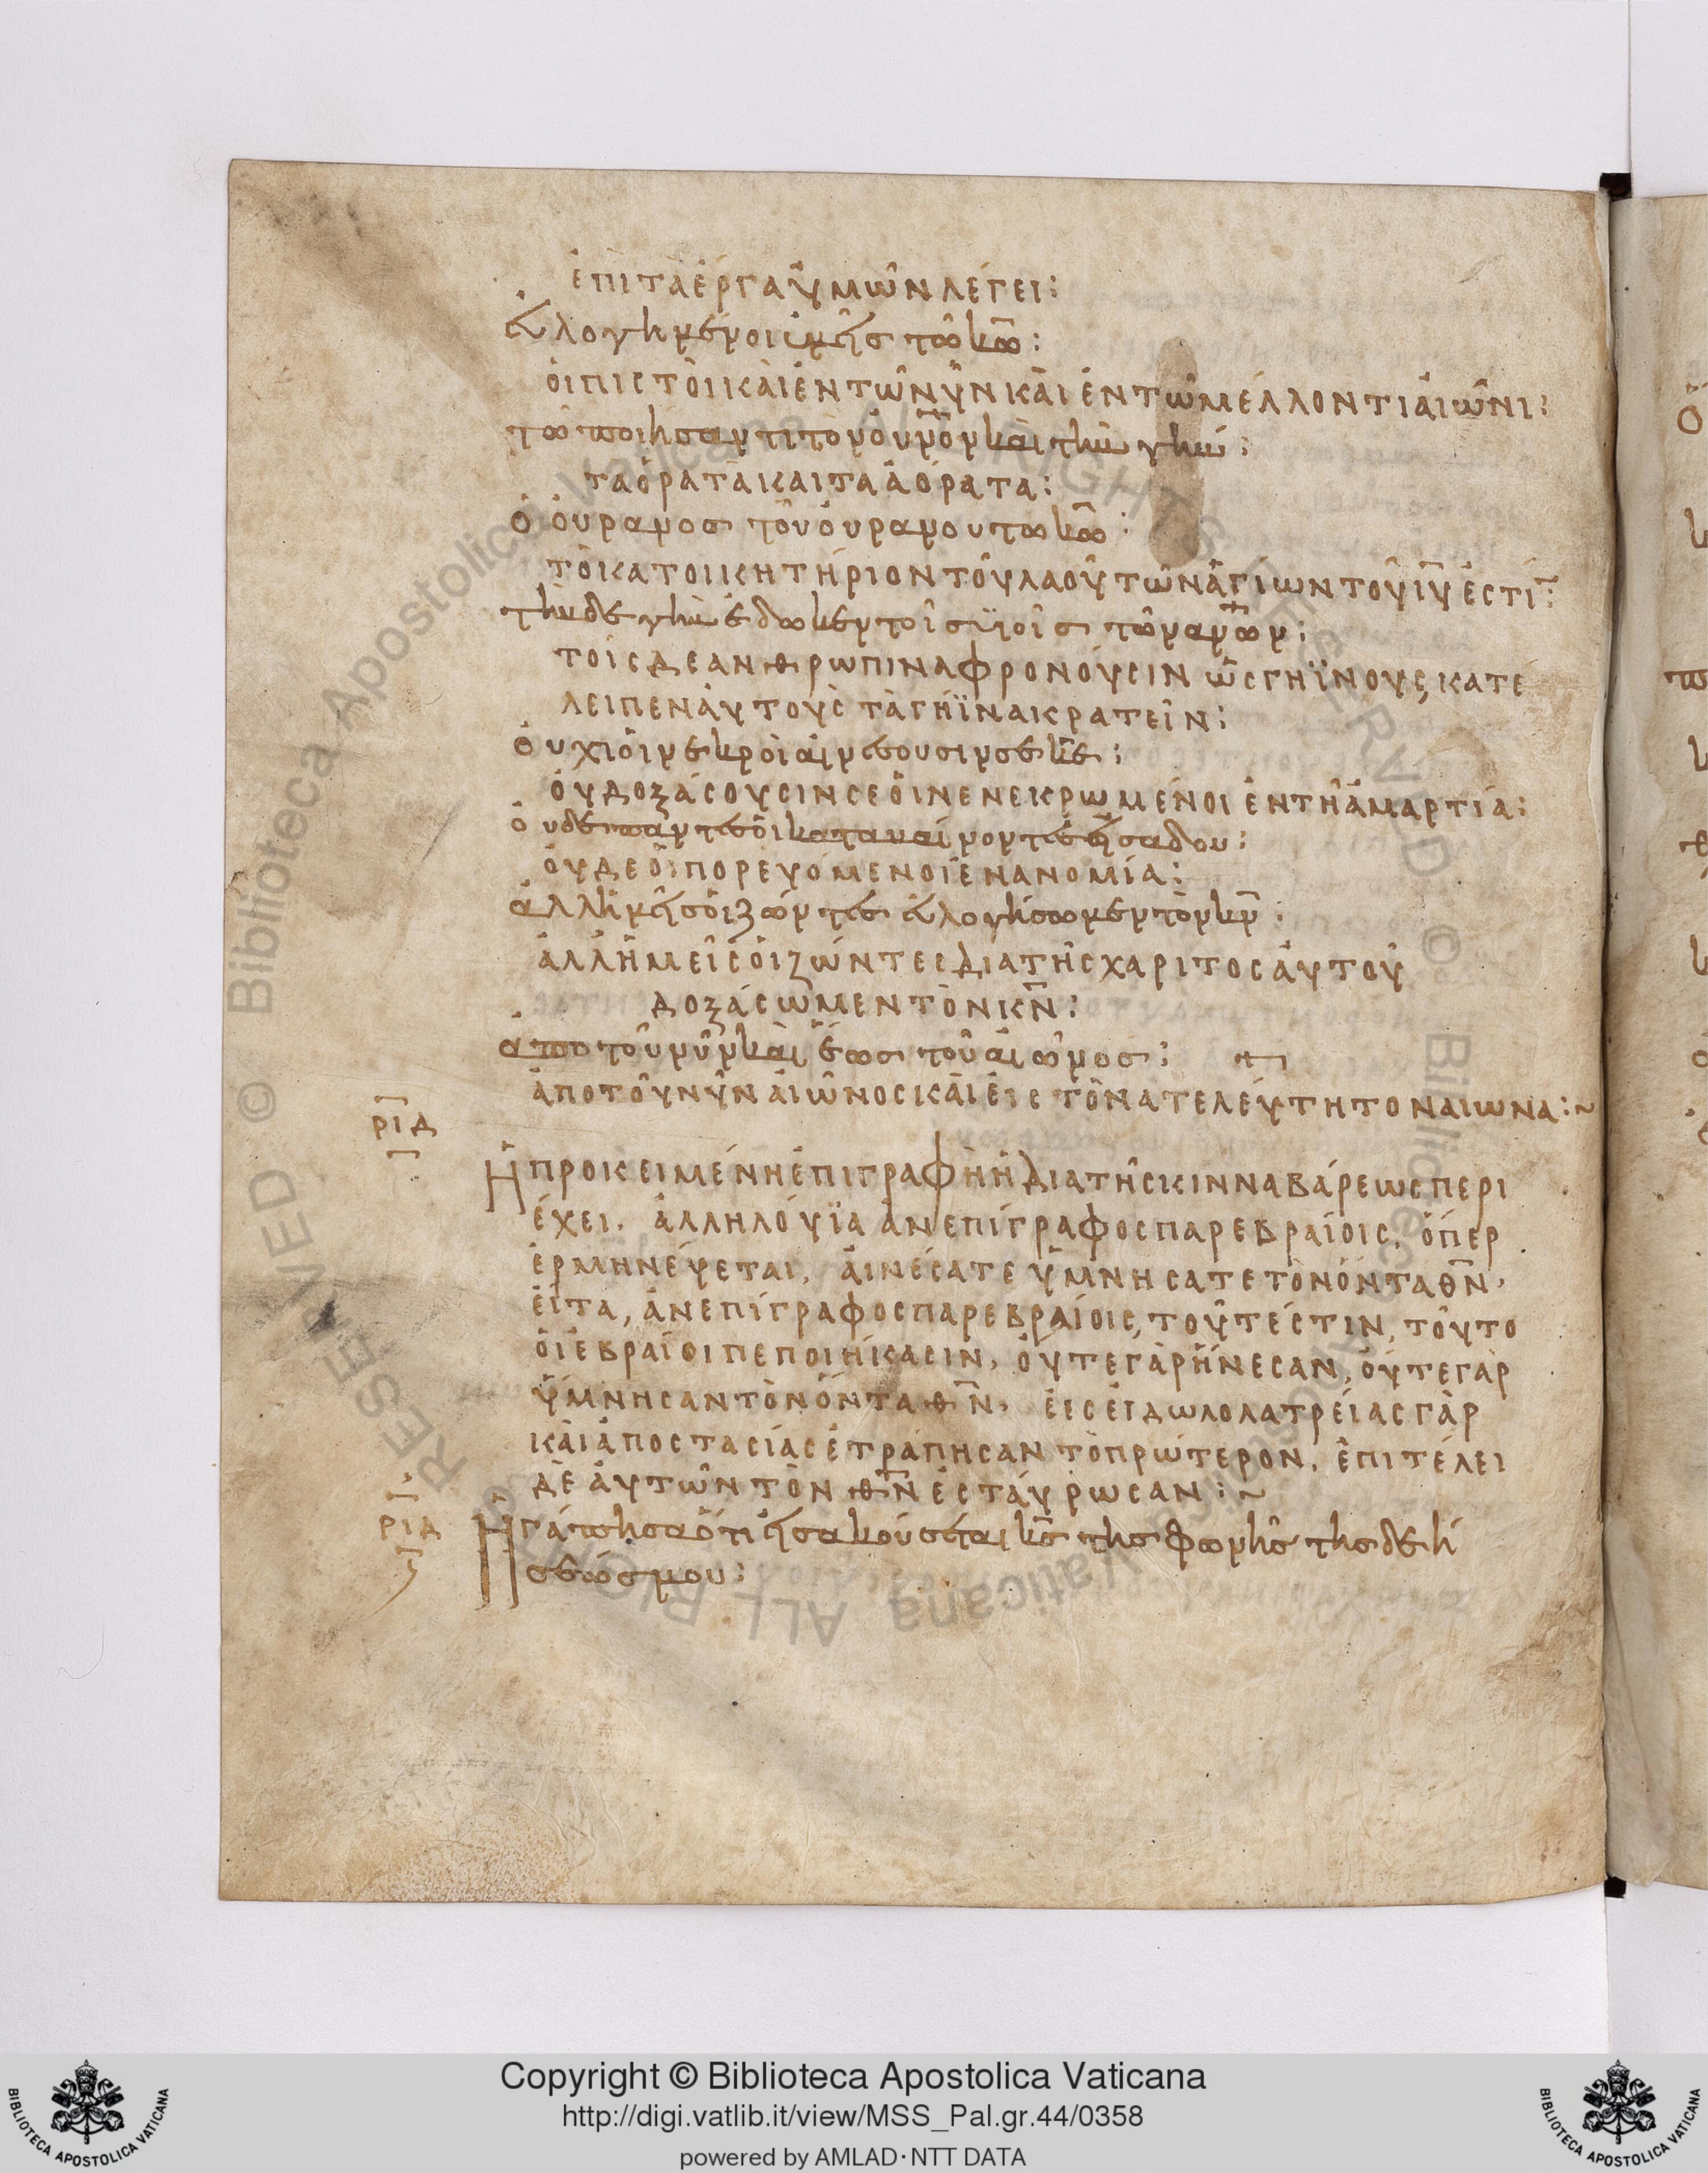 ἐπὶ τὰ ἔργα ὑμῶν λέγει:
εὐλογημένοι ὑμεῖς τῶ κω:
ὁι πιστὸι κὰι ἐν τῶ νῦν κὰι ἐν τῶ μέλλοντι ἀιῶνι:
τῶ ποιήσαντι τὸν ουνον κὰι τὴν γῆν:
τα ὁρατὰ και τα ἀόρατα:
ὁ ὀυρανος τοῦ ὀυρανου τω κω:
τὸ κατοικητήριον τοῦ λαοῦ τῶν ἁγίων τοῦ ιυ ἐστί:
τὴν δε γὴν ἔδωκεν τοῖς ϋϊοῖς τῶν ανων:
τοῖς δε ανθρωπινα φρονόυσιν ὡς γηΐνους, κατέ
λειπεν ἀυτοὺς τὰ γήϊνα κρατεῖν:
ὀυχι ὁι νεκρὸι ἀινέσουσιν σέ κε:
ὀυ δοξάσουσιν σε ὁι νενεκρωμένοι ἐν τῆ ἁμαρτία:
ὀυδε παντες ὁι καταβαίνοντες ἐις αδου:
ὀυδε ὁι πορευόμενοι ἐν ανομία:
ἀλλ ἡμεῖς ὁι ζῶντες εὐλογήσωμεν τὸν κν:
ἀλλ ἡμεῖς ὁι ζώντες δια τῆς χαριτος ἀυτοῦ
δοξάσωμεν τὸν κν:
ἀπο τοῦ νῦν κὰι ἕως τοῦ ἀιῶνος:
ἀπο τοῦ νῦν ἀιῶνος κὰι ἐις τὸν ατελέυτητον αιωνα:~
ριδ
Ἡ προκειμένη ἐπιγραφὴ ἡ δια τῆς κινναβάρεως περι
έχει. ἀλληλόυϊα ἀνεπίγραφος παρ εβραίοις. ὅπερ
ἑρμηνέυεται, ἀινέσατε ὑμνησατε τὸν ὄντα θν,
ἐῖτα, ἀνεπίγραφος παρ εβραίοις, τοῦτέστιν, τοῦτο
ὁι ἑβραῖοι πεποιήκασιν, ὄυτε γὰρ ἤνεσαν, ὄυτε γὰρ
ὕμνησαν τὸν ὄντα θν, ἐις ἐιδωλολατρείας γὰρ
κὰι ἀποστασίας ἐτράπησαν τὸ πρώτερον. ἐπι τέλει
δὲ ἀυτῶν τὸν θν ἐστάυρωσαν:~
ριδ
Ἠγάπησα ὅτι ἐισακούσεται κς της φωνῆς της δεή
σεώς μου:
Copyright © Biblioteca Apostolica Vaticana
http://digi.vatlib.it/view/MSS_Pal.gr.44/0358
powered by AMLAD·NTT DATA
BIBLIOTECA APOSTOLICA VATICANA
BIBLIOTECA APOSTOLICA VATICANA